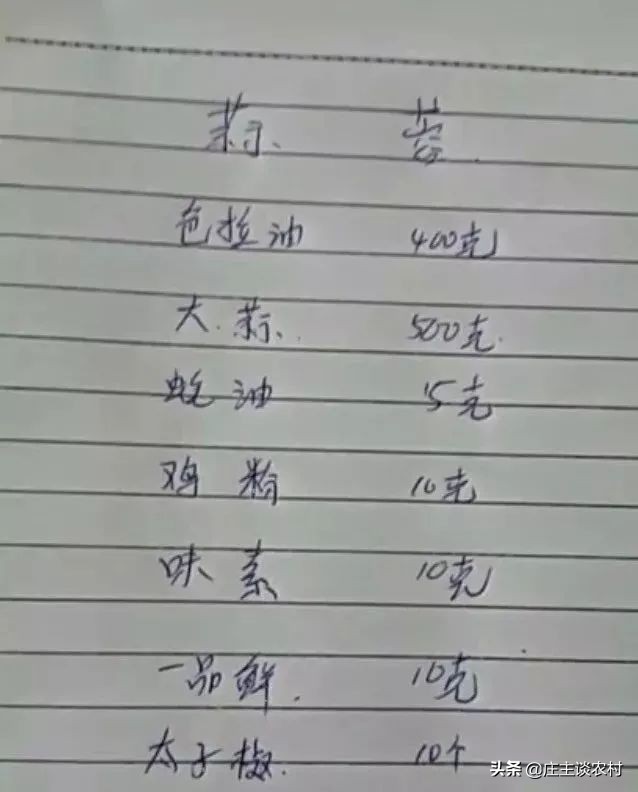 蒜 蓉
色拉油 400克
大蒜 500克
蚝油 15克
鸡粉 10克
味素 10克
一品鲜 10克
太子椒 10个
头条 @庄主谈农村